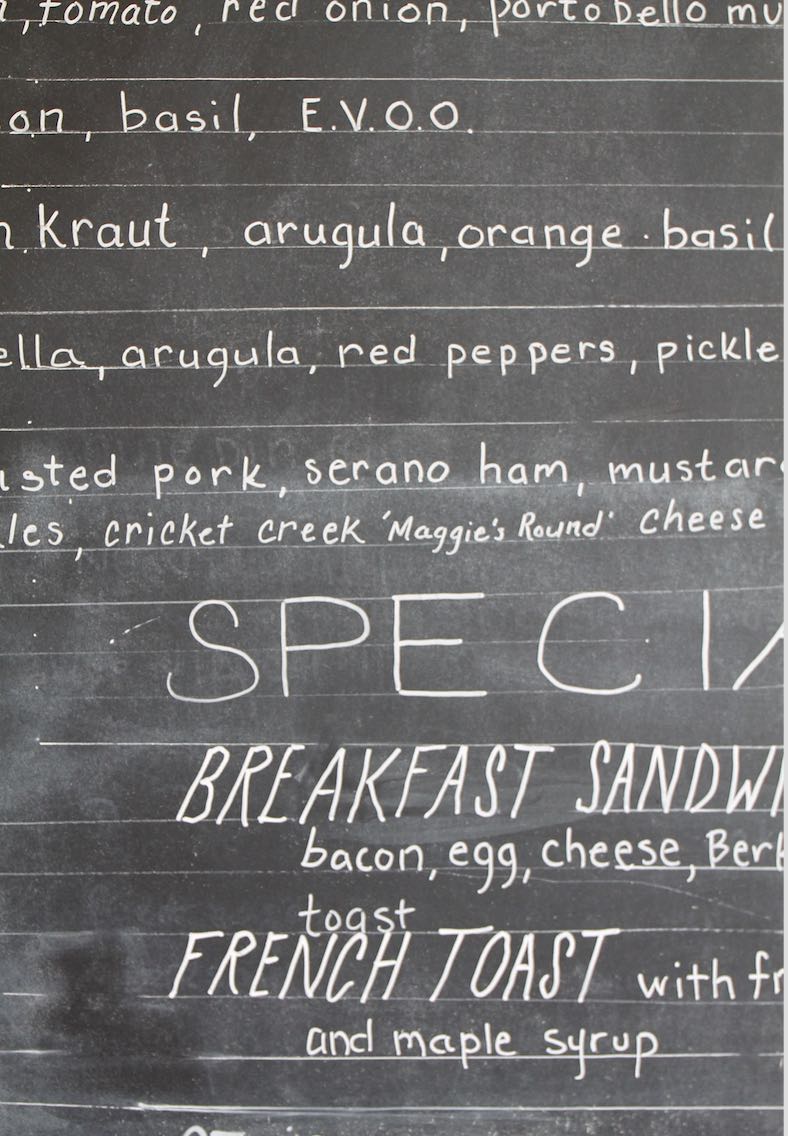 , tomato, red onion, portobello mu
on, basil, E.V.O.O.
n Kraut, arugula, orange · basil
ella, arugula, red peppers, pickle
usted pork, serano ham, mustar
les, cricket creek 'Maggie's Round' cheese
SPECIA
BREAKFAST SANDWI
bacon, egg, cheese, Berk
toast
FRENCH TOAST with fr
and maple syrup